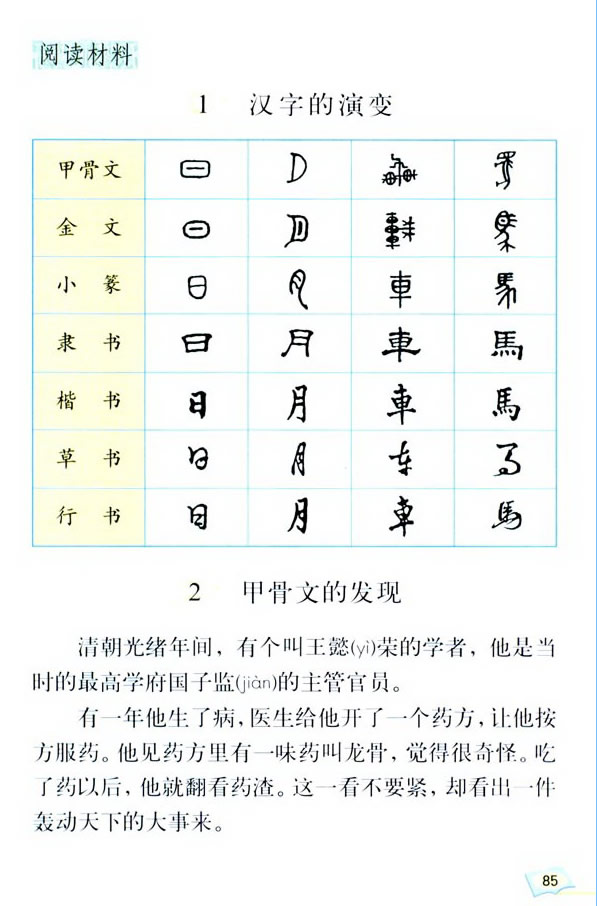 阅读材料
1 汉字的演变
甲骨文 日 月 車 馬
金文 日 月 車 馬
小篆 日 月 車 馬
隶书 日 月 車 馬
楷书 日 月 車 馬
草书 日 月 车 马
行书 日 月 車 馬
2 甲骨文的发现
清朝光绪年间，有个叫王懿(yì)荣的学者，他是当
时的最高学府国子监(jiàn)的主管官员。
有一年他生了病，医生给他开了一个药方，让他按
方服药。他见药方里有一味药叫龙骨，觉得很奇怪。吃
了药以后，他就翻看药渣。这一看不要紧，却看出一件
轰动天下的大事来。
85